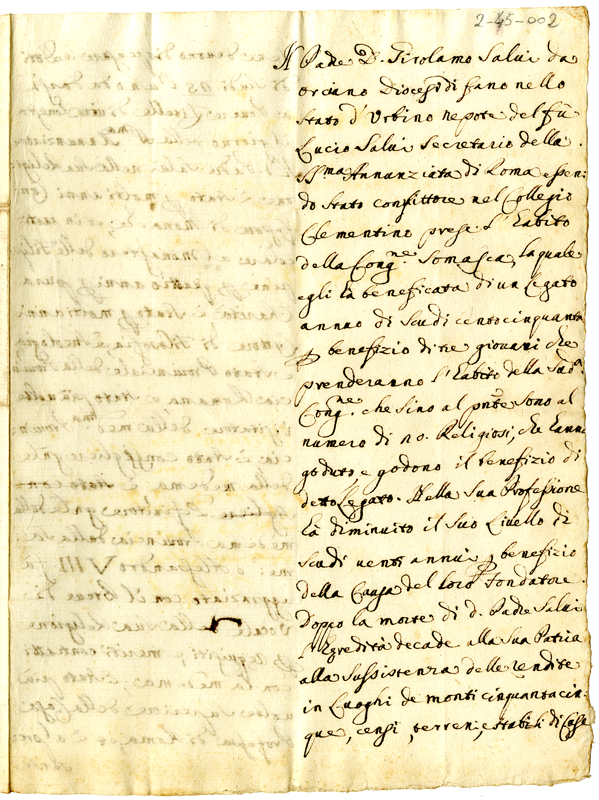 2-45-002
Il Padre D. Girolamo Salvi da
orciano Diocesi di fano nello
Stato d'Urbino nepote del fù
Lucio Salvi Secretario della
SS.ma Annunziata di Roma essen:
do stato convittore nel Collegio
Clementino prese l'habito
della Cong.ne Somasca, la quale
egli hà beneficata di un legato
annuo di scudi centocinquanta
benefizio di tre giovani che
prenderanno l'habito della Sud.a
Cong.ne che sino al pnte sono al
numero di 20. Religiosi, che hanno
goduto e godono il benefizio di
detto Legato. Nella sua Professione
hà diminuito il suo Livello di
scudi venti annui benefizio
della Causa del loro fondatore.
Doppo la morte di d. Padre Salvi
l'Egredità decade alla sua Patria
alla sussistenza delle rendite
in luoghi de monti cinquantacin:
que, censi, terreni, e stabili di Case